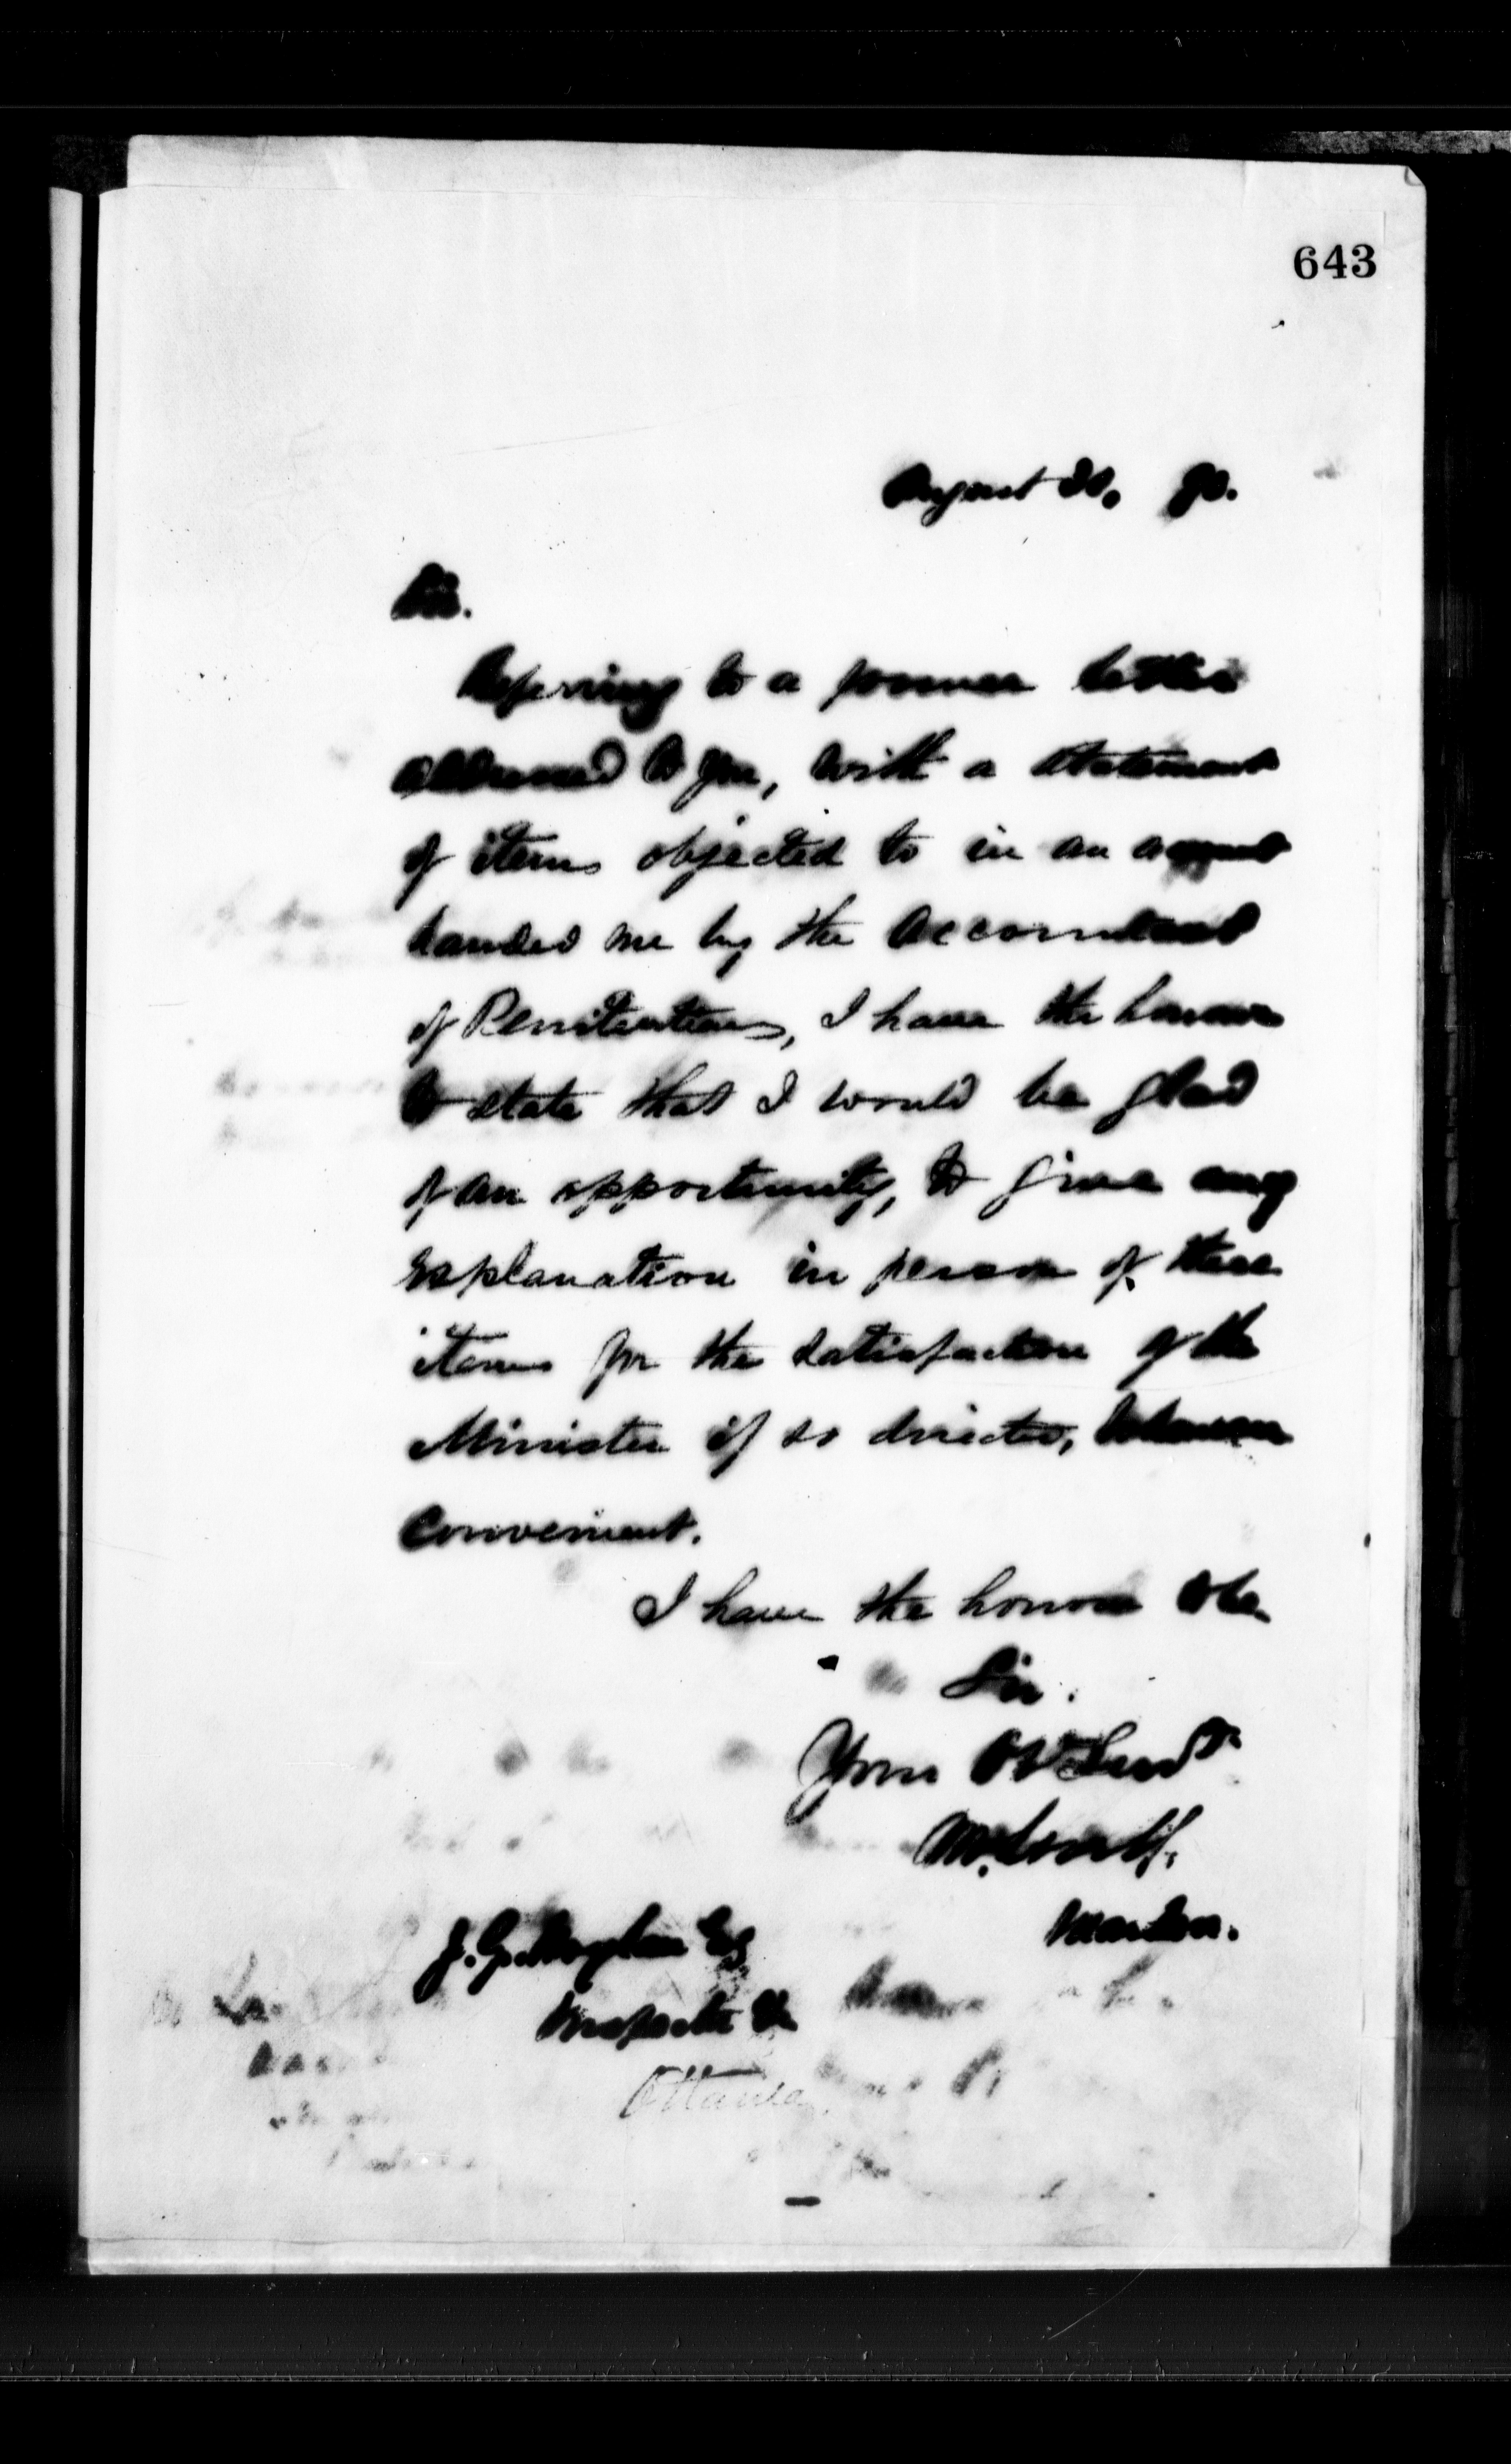 643
August 20, 90.
Sir.
Referring to a former letter
addressed to you, with a statement
of items objected to in an account
handed me by the Accountant
of Penitentiaries, I have the honour
to state that I would be glad
of an opportunity, to give any
explanation in person of these
items for the satisfaction of the
Minister if so directed, whenever
convenient.
I have the honor to be
Sir.
Your Obt Servt
Warden.
J. G. Moylan Esq
Inspector &c
Ottawa